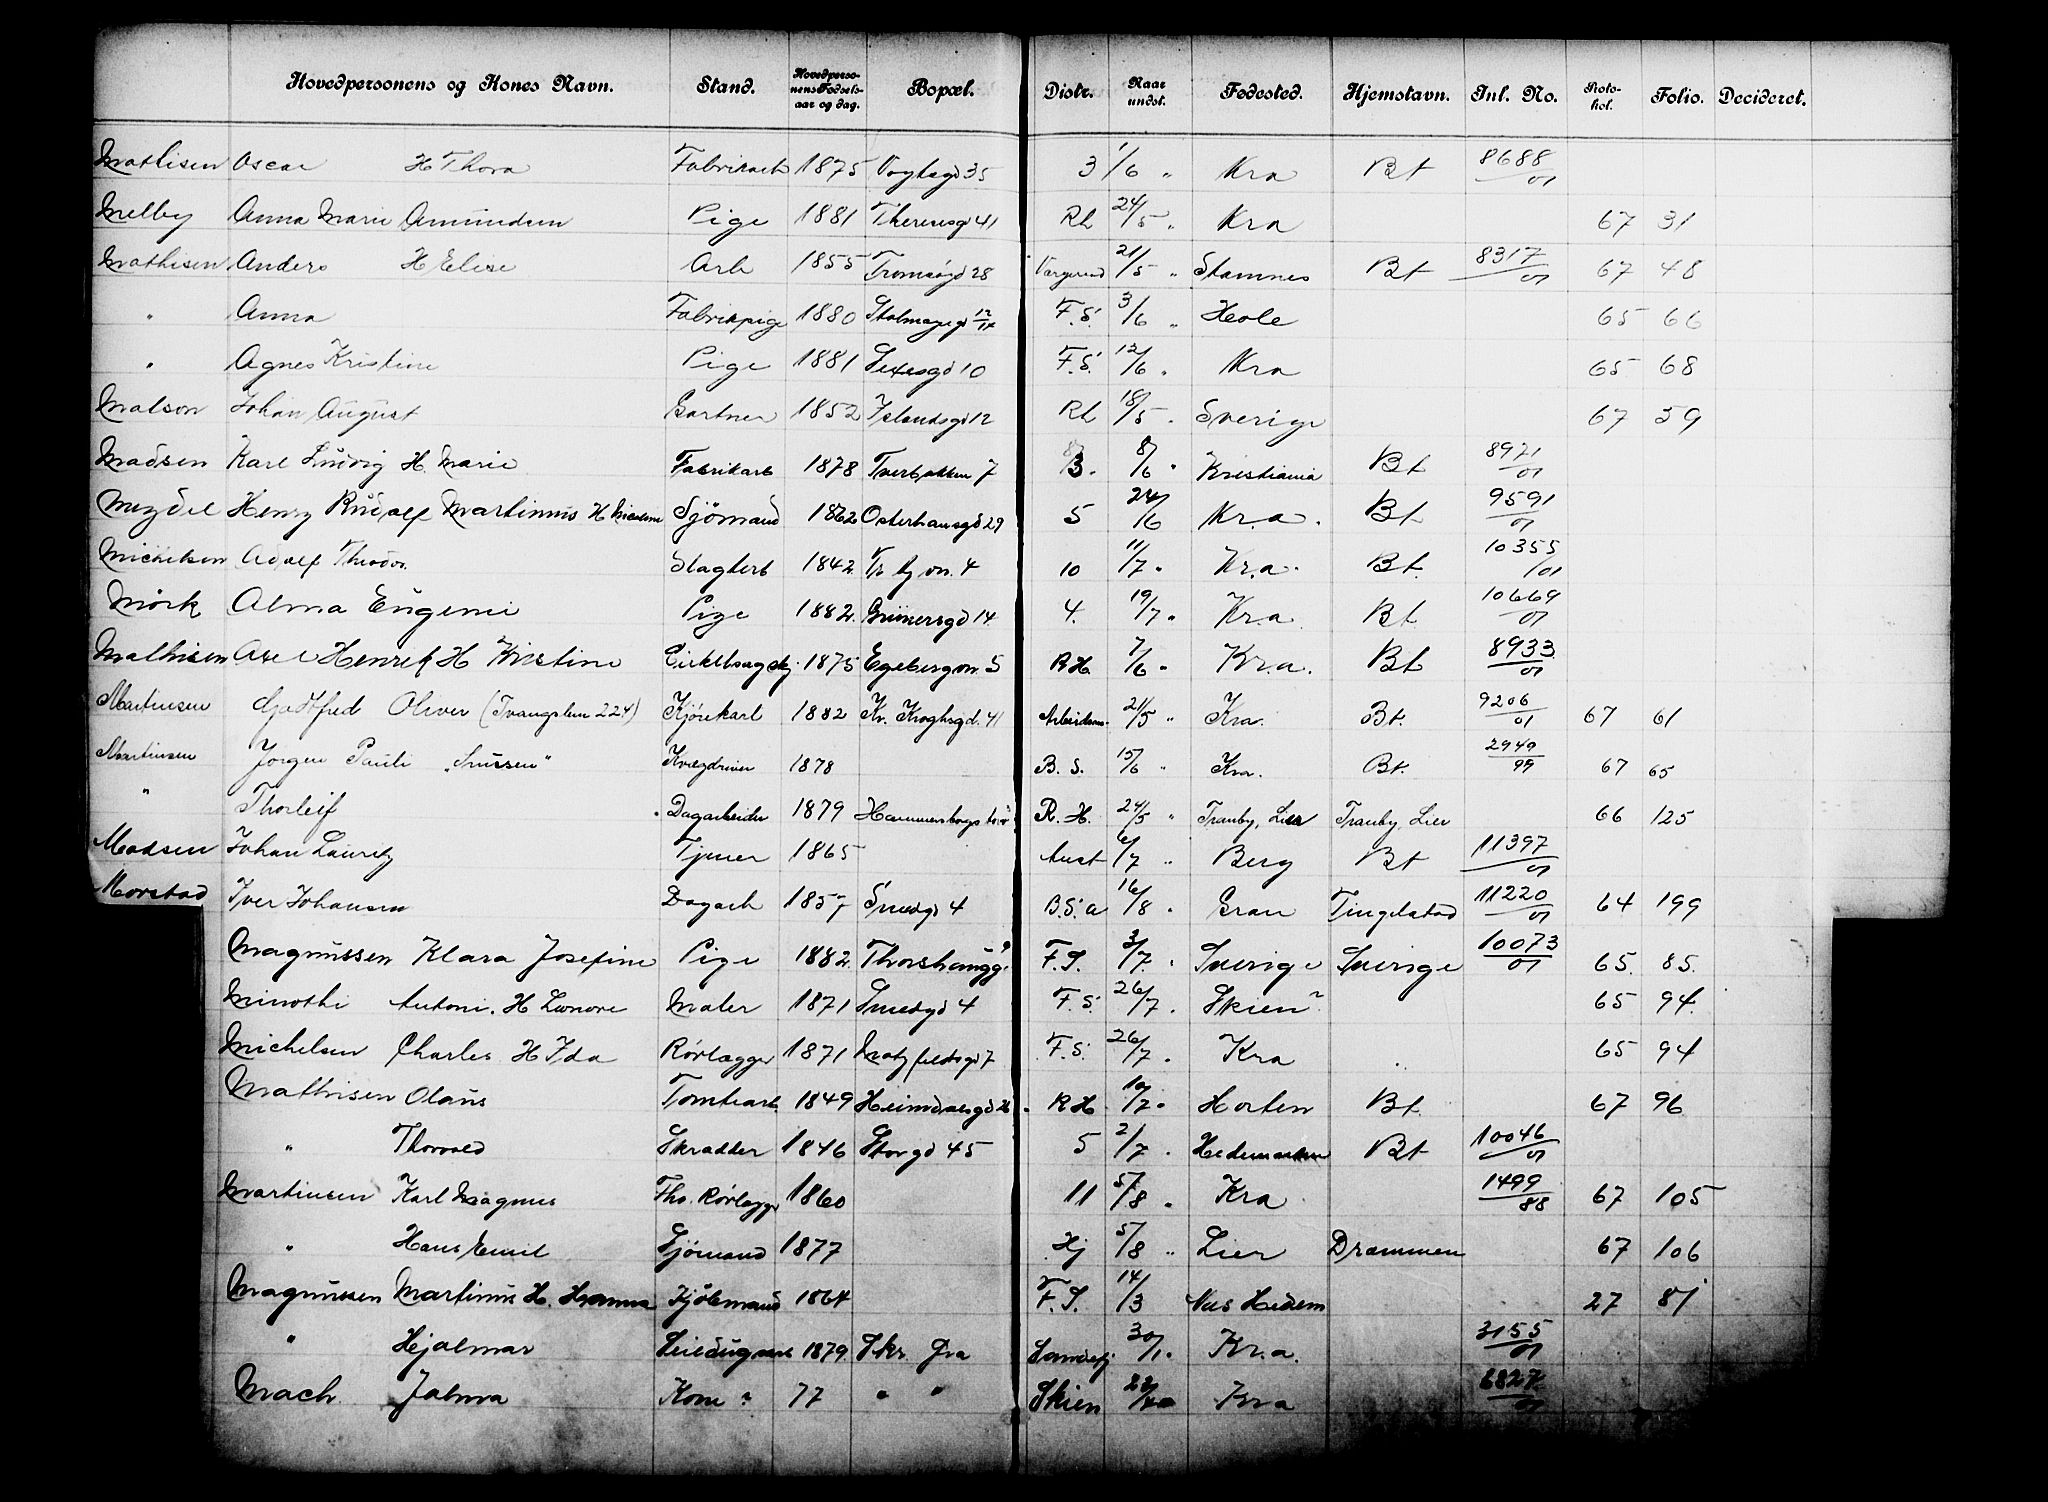 Hovedpersonens og Kones Navn. Stand. Hovedpersonens Fødselsaar og dag. Bopæl. Distr. Naar undst. Fødested. Hjemstavn. Inl. No. Protokol. Folio. Decideret.
Mathisen Oscar H Thora Fabrikarb 1875 Vogtsgd 35 3 1/6 " Kra Bt 8688/01
Melby Anna Marie Amundsen Pige 1881 Theresesgd 41 Rh 24/5 " Kra 67 31
Mathisen Anders H Elise Arb 1855 Tromsøgd 28 21/5 " Stamnes Bt 8317/01 67 48
" Anna Fabrikpige 1880 F.S. 3/6 " Hole 65 66
" Agnes Kristine Pige 1881 10 F.S. 12/6 " Kra 65 68
Matson Johan August Gartner 1852 Islandsgd 12 Rh 18/5 " Sverige 67 59
Madsen Karl Ludvig H. Marie Fabrikarb 1878 Tverbakken 7 3. 8/6 " Kristiania Bt 8971/01
Meydel Henry Rudolf Martinius H Sjömand 1862 Osterhausgd 29 5 24/6 Kr.a. Bt 9591/01
Michelsen Adolf Theodor. Slagterb 1842 4 10 11/7 " Kr.a. Bt. 10355/01
Mörk Alma Eugenie Pige 1882. Grünersgd 14. 4. 19/7 " Kr.a. Bt. 10669/01
Mathisen Axel Henrik H Kristine 1875 Egebergvn. 5 R.H. 7/6 " Kr.a. Bt 8933/01
Martinsen Godtfred Oliver (Tvangslem 224) Kjörekarl 1882 Kr. Kroghsgd. 41 21/5 " Kra. Bt. 9206/01 67 61
Martinsen Jørgen Pauli "Snussen" Kvægdriver 1878 B.S. 15/6 " Kra. Bt. 2949/99 67 65
" Thorleif Dagarbeider 1879 R.H. 24/5 " Tranby, Lier Tranby, Lier 66 125
Madsen Johan Lauritz Tjener 1865 Aust 6/7 " Berg Bt 11397/01
Morstad Iver Johansen Dagarb 1857 Smedgd 4 B.S.a 16/8 " Gran Tingelstad 11220/01 64 199
Magnussen Klara Josefine Pige 1882. Thorshaugg. 9 F.S. 3/7. " Sverige Sverige 10073/01 65. 85.
Minothi Antoni. H Leonore Maler 1871 Smedgd 4 F.S. 26/7. Skien? 65 94.
Michelsen Charles H Ida Rörlægger 1871 Motzfeldtsgd 7 F.S. 26/7. Kra 65 94
Mathisen Olaus Tomtearb. 1849 Heimdalsgd 26 R H 10/7 " Horten Bt. 67 96
" Thorvald Skrædder 1846 Storgd 45 5 2/7. Hedemarken Bt 10046/01
Martinsen Karl Magnus Fhv. Rörlægger 1860 11 5/8 " Kra 1499/88 67 105
" Hans Emil Sjömand 1877 Hj 5/8 " Lier Drammen 67 106
Magnussen Martinus H. Hanna Kjöbmand 1864 F.S. 14/3 Næs Hedem 27 81
" Hjalmar 1879. Skr. fra 30/1. Kr.a. 3155/01
Mach. Jalma Kone? 77 " " Skien Kra 6827/01